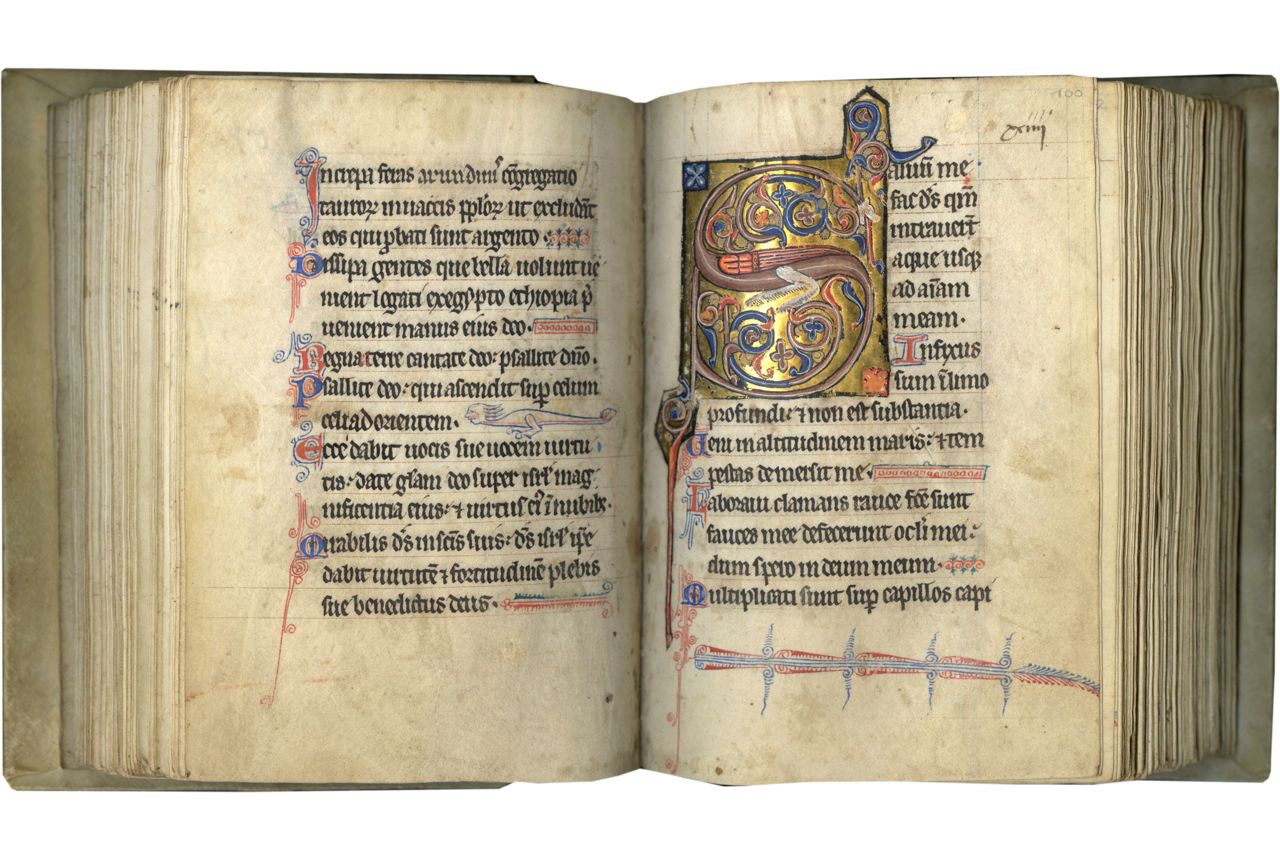 Increpa feras arundinꝰ c̄gregatio
tauroꝝ in uaccis ppl̓oꝝ ut excludāt
eos qui ꝓbati sunt argento.
Dissipa gentes que bella uolunt ue
nient legati ex egypto ethiopia p̄
uenient manus eius deo.
Regna terre cantate deo. psallite dn̄o.
Psallite deo. qui ascendit suꝑ celum
celi ad orientem.
Ecce dabit uocis sue uocem uirtu
tis. date gl̄am deo super isrl̓ mag
nificentia eius. ⁊ uirtus ei᷒ ī nubibꝫ.
Mirabilis ds̄ in scīs suis. ds̄ isrl̓ ip̄e
dabit uirtutē ⁊ fortitudinē plebis
sue benedictus deus.
100
xiiii
Saluū me
fac ds̄ qm̄
intrauerт̄
aque usqꝫ
ad aīam
meam.
Infixus
sum ī limo
profundi ⁊ non est substantia.
Ueni in altitudinem maris. ⁊ tem
pestas demersit me.
Laboraui clamans rauce fc̄e sunt
fauces mee defecerunt ocl̓i mei.
dum spero in deum meum.
Multiplicati sunt suꝑ capillos capi